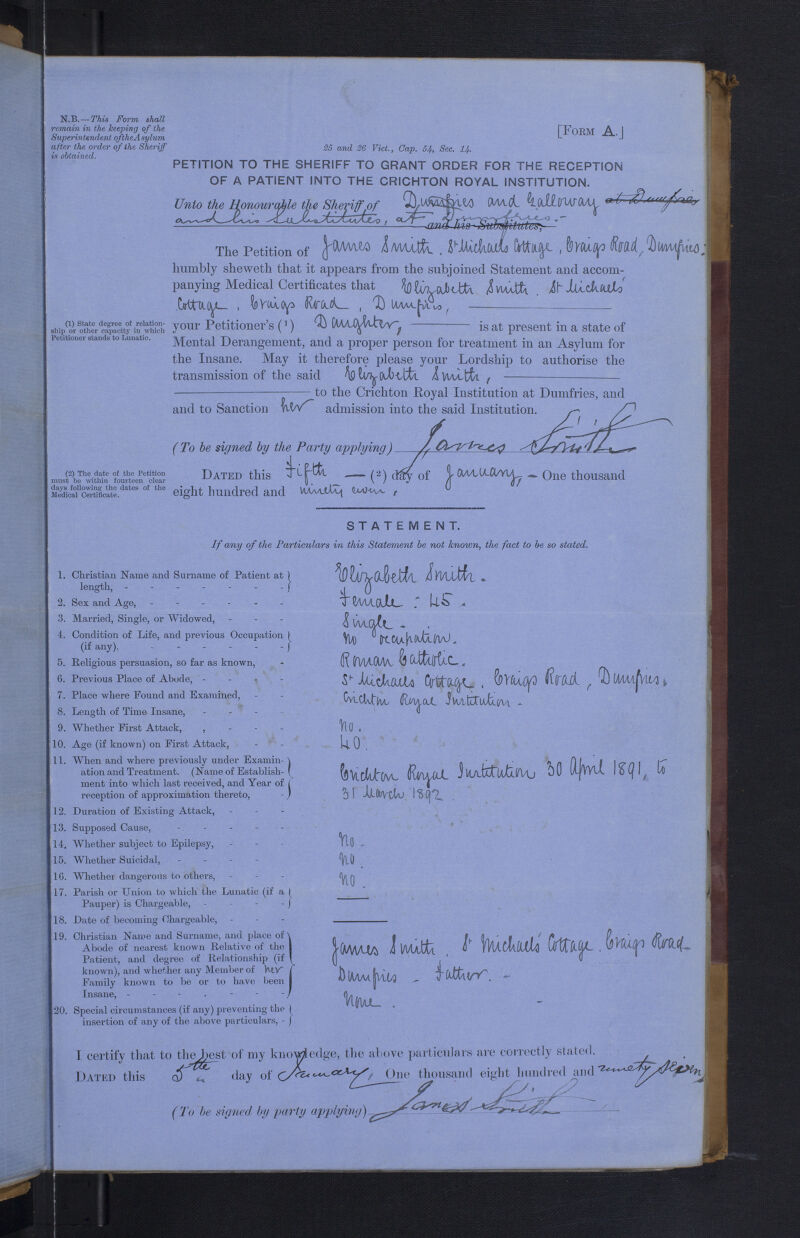 N.B.—This Form shall
remain in the keeping of the
Superintendent of the Asylum
after the order of the Sheriff
is obtained.
[FORM A.]
25 and 26 Vict., Cap. 54, Sec. 14.
PETITION TO THE SHERIFF TO GRANT ORDER FOR THE RECEPTION
OF A PATIENT INTO THE CRICHTON ROYAL INSTITUTION.
Unto the Honourable the Sheriff of Dumfries and Galloway at Dumfries
and his Substitutes, at Dumfries.-
and his Substitutes,
The Petition of James Smith, St Michaels Cottage, Craigs Road, Dumfries:
humbly sheweth that it appears from the subjoined Statement and accom-
panying Medical Certificates that Elizabeth Smith. St Michaels'
Cottage, Craigs Road, Dumfries,
(1) State degree of relation-
ship or other capacity in which
Petitioner stands to Lunatic.
your Petitioner's (1) Daughter, is at present in a state of
Mental Derangement, and a proper person for treatment in an Asylum for
the Insane. May it therefore please your Lordship to authorise the
transmission of the said Elizabeth Smith,
to the Crichton Royal Institution at Dumfries, and
and to Sanction her admission into the said Institution.
(To be signed by the Party applying) James Smith
(2) The date of the Petition
must be within fourteen clear
days following the dates of the
Medical Certificate.
DATED this Fifth — (2) day of January, — One thousand
eight hundred and ninety seven,
STATEMENT.
If any of the Particulars in this Statement be not known, the fact to be so stated.
1. Christian Name and Surname of Patient at
length, - Elizabeth Smith.
2. Sex and Age, - Female : 45.
3. Married, Single, or Widowed, - Single.
4. Condition of Life, and previous Occupation
(if any). - No occupation.
5. Religious persuasion, so far as known, - Roman Catholic.
6. Previous Place of Abode, - St Michaels Cottage, Craigs Road, Dumfries.
7. Place where Found and Examined, - Crichton Royal Institution.
8. Length of Time Insane, -
9. Whether First Attack, - No.
10. Age (if known) on First Attack, - 40.
11. When and where previously under Examin-
ation and Treatment. (Name of Establish-
ment into which last received, and Year of Crichton Royal Institution 30 April 1891, to
reception of approximation thereto, - 31 March 1892
12. Duration of Existing Attack, -
13. Supposed Cause, -
14. Whether subject to Epilepsy, - No.
15. Whether Suicidal, - No.
16. Whether dangerous to others, - No.
17. Parish or Union to which the Lunatic (if a
Pauper) is Chargeable, - —
18. Date of becoming Chargeable, - —
19. Christian Name and Surname, and place of
Abode of nearest known Relative of the James Smith. St Michaels' Cottage. Craigs Road
Patient, and degree of Relationship (if
known), and whether any Member of her Dumfries - Father. -
Family known to be or to have been
Insane, - None.
20. Special circumstances (if any) preventing the
insertion of any of the above particulars, -
I certify that to the best of my knowledge, the above particulars are correctly stated.
DATED this 5th day of January, One thousand eight hundred and ninety seven
(To be signed by party applying) James Smith